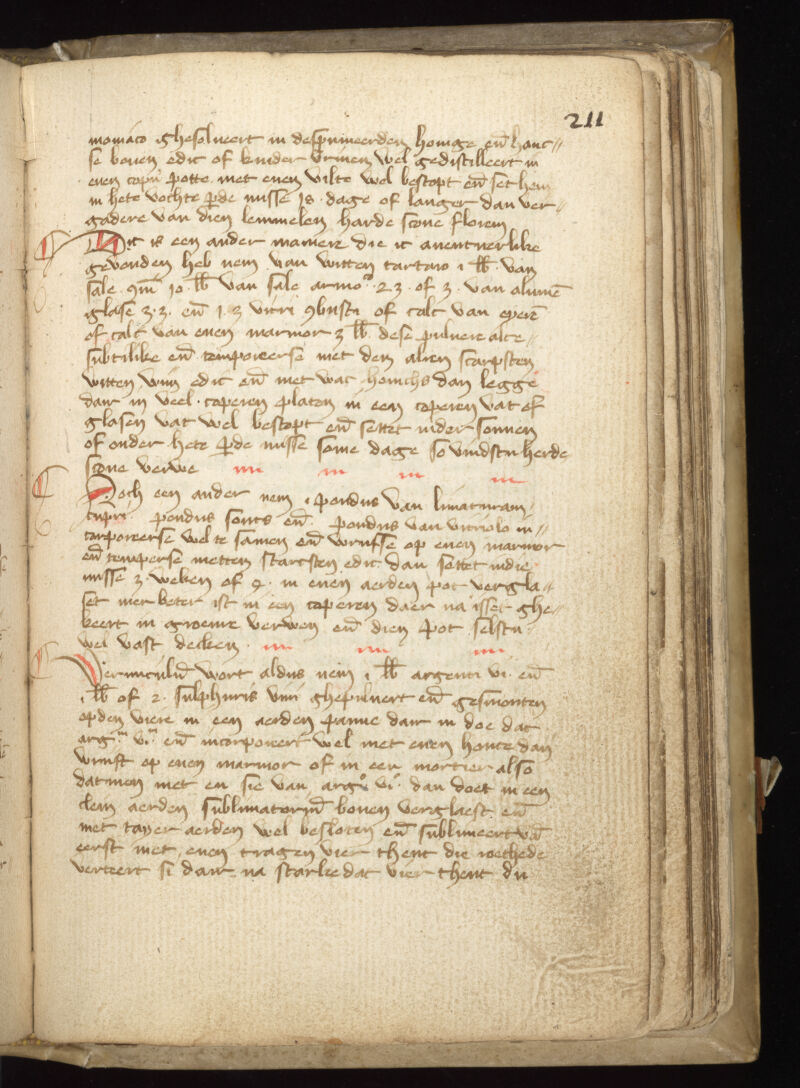 211
moniaco ghesolueert in despumeerden honige en̄ hanc⸗
se bouen edic of kinder vrinen wel gedistilleert in
enen copn̄ potte met enen vilte wel bestopt en̄ set hem
in hete vochte p̄de misse 18 dage of langer dan ver⸗
gadere van dien lemmelen harde scone florem
Dit is een ander maniere die ic auentuerlike
gevonden heb nem van witten tartaro i lb van
sale 9m̄ 10 lb van sale armo° 2 ʒ of 3 van alumē
glase 3 ʒ en̄ 1 ʒ vitri 9busti of calc van eyerē
of calc van enen marmor 3 lb dese pulnere alte⸗
subtilike en̄ temporeerse met den alren scarpsten
witten wijn edic en̄ met wat honichs dan legge
dair in veel coperen platen in een coperen vat of
glasen vat wel bestopt en̄ settet inder sonnen
of onder hete p̄de misse some dage so vindstu herde
scone verwe
Noch een ander nem i pondus van limaturam
cupri pondus souts en̄ pondus van vitriolo in⸗
corporeerse wel te samen en̄ wrijfse op enen marmor
en̄ temperse metten starcsten edic dan settet indie
misse 3 weken of 4 in enen aerden pot vergla⸗
set mer beter ist in een coperen daer na isset ghe⸗
keert in groenre verwen en̄ dien pot selstu
wel vast decken
Vermiculū wort aldus nem i lb argenti vi en̄
i lb of 2 sulphuris viui ghepulvert en̄ gesmonten
opden viere in een aerden panne dair in doe dat
arg vi en̄ incorporeert wel met enen houte dan
wrijft op enen marmor of in een mortier also
datmen niet en sie van arg° vi° dan doet in een
clein aerden sublimatoriū bouen verglaest en̄
met tayer aerden wel besloten en̄ sublimeert vā
eerst met enen tragen vier thent die wechede
verteert si dair na starke dat vier thent du